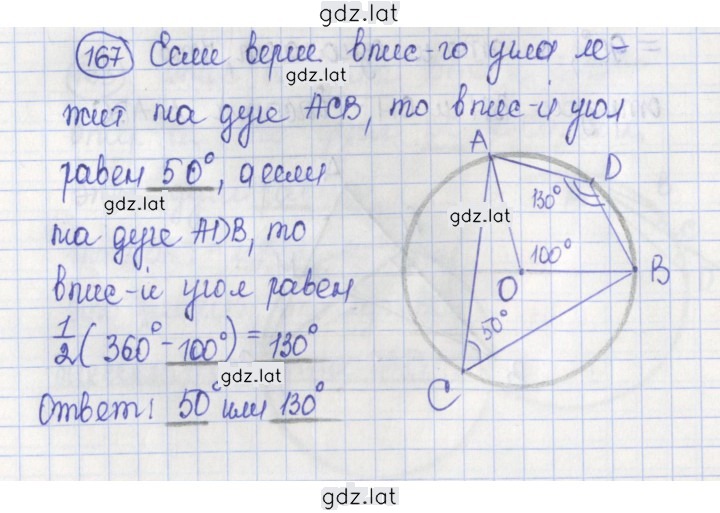 gdz.lat
167 Если верш впис-го угла ле-
gdz.lat
жит на дуге ACB, то впис-й угол
равен 50°, а если
gdz.lat
на дуге ADB, то
впис-й угол равен
1/2(360°-100°)=130°
gdz.lat
Ответ: 50° или 130°
A
D
130°
gdz.lat
100°
O
B
50°
C
gdz.lat